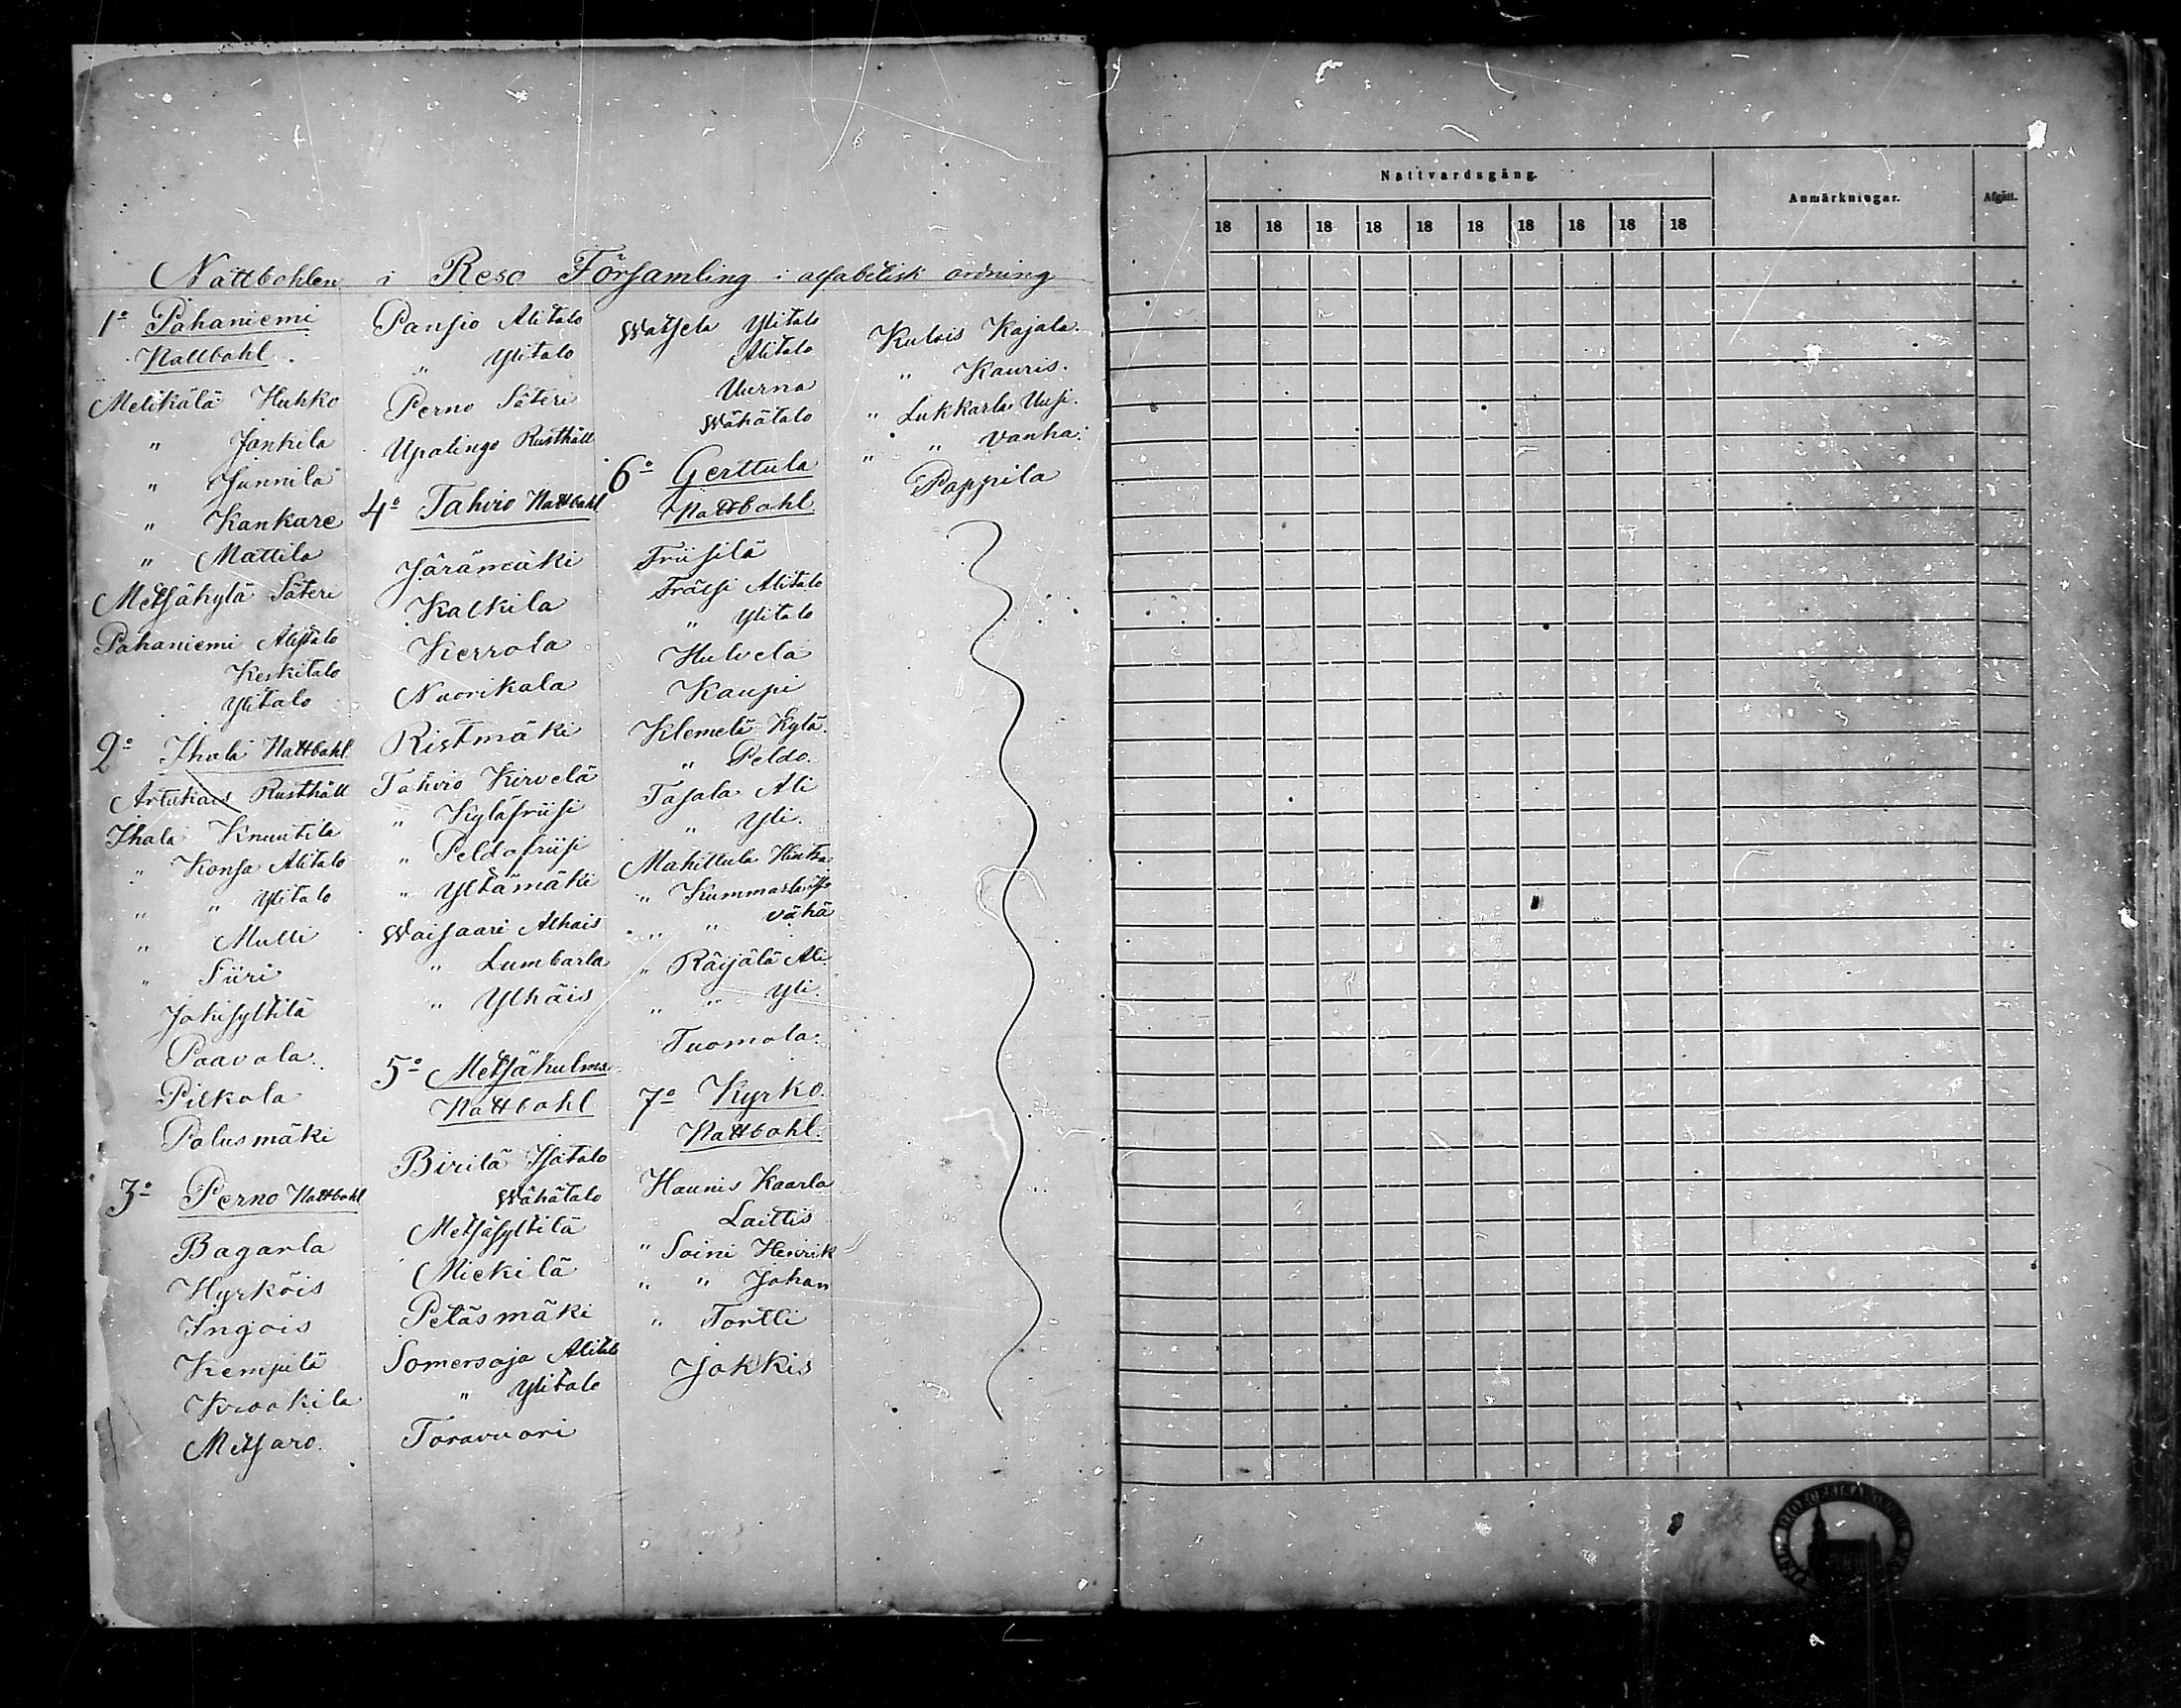 Nattbohlen i Reso Församling i alfabetisk ordning
1º Pahaniemi
Nattbohl.
Metikälä Huhko
" Jankila
" Junnila
" Kankare
" Mattila
Metsäkylä Säteri
Pahaniemi Alitalo
Keskitalo
Ylitalo
2º Ihala Nattbohl.
Artukais Rusthåll
Ihala Knuutila
" Konsa Alitalo
" " Ylitalo
" Mulli
" Siiri
Jokisyltilä
Paavola.
Pilkola
Palusmäki
3º Perno Nattbohl
Bagarla
Hyrköis
Ingois
Kempilä
Krookila
Metsaro.
Pansio Alitalo
" Ylitalo
Perno Säteri
Upalingo Rusthåll
4º Tahvio Nattbohl
Järämäki
Kalkila
Kerrola
Nuorikala
Ristmäki
Tahvio Kirvelä
" Kyläfriisi
" Peldofriisi
" Yltämäki
Waisaari Alhais
" Lumbarla
" Ylhäis
5º Metsäkulma
Nattbohl
Birilä Isotalo
Wähätalo
Metsäsyltilä
Mickilä
Petäsmäki
Somersoja Alitalo
" Ylitalo
Toravuori
Watsela Ylitalo
Alitalo
Uurna
Wähätalo
6º Gerttula
Nattbohl
Friisilä
Frälsi Alitalo
" Ylitalo
Hulvela
Kaupi
Klemelä Kylä.
" Peldo.
Tasala Ali
" Yli.
Mahittula Hintsa
" Kummarla Iso
" " vähä
" Räijälä Ali.
" " Yli.
Tuomola.
7º Kyrko.
Nattbohl.
Haunis Kaarla
Laittis
" Soini Henrik
" " Johan
" Tortti
Jakkis
Kulois Kajala.
" Kauris.
" Lukkarla Uusi.
" " Vanha.
Pappila
Nattvardsgång.
Anmärkningar.
Afgått.
18 18 18 18 18 18 18 18 18 18